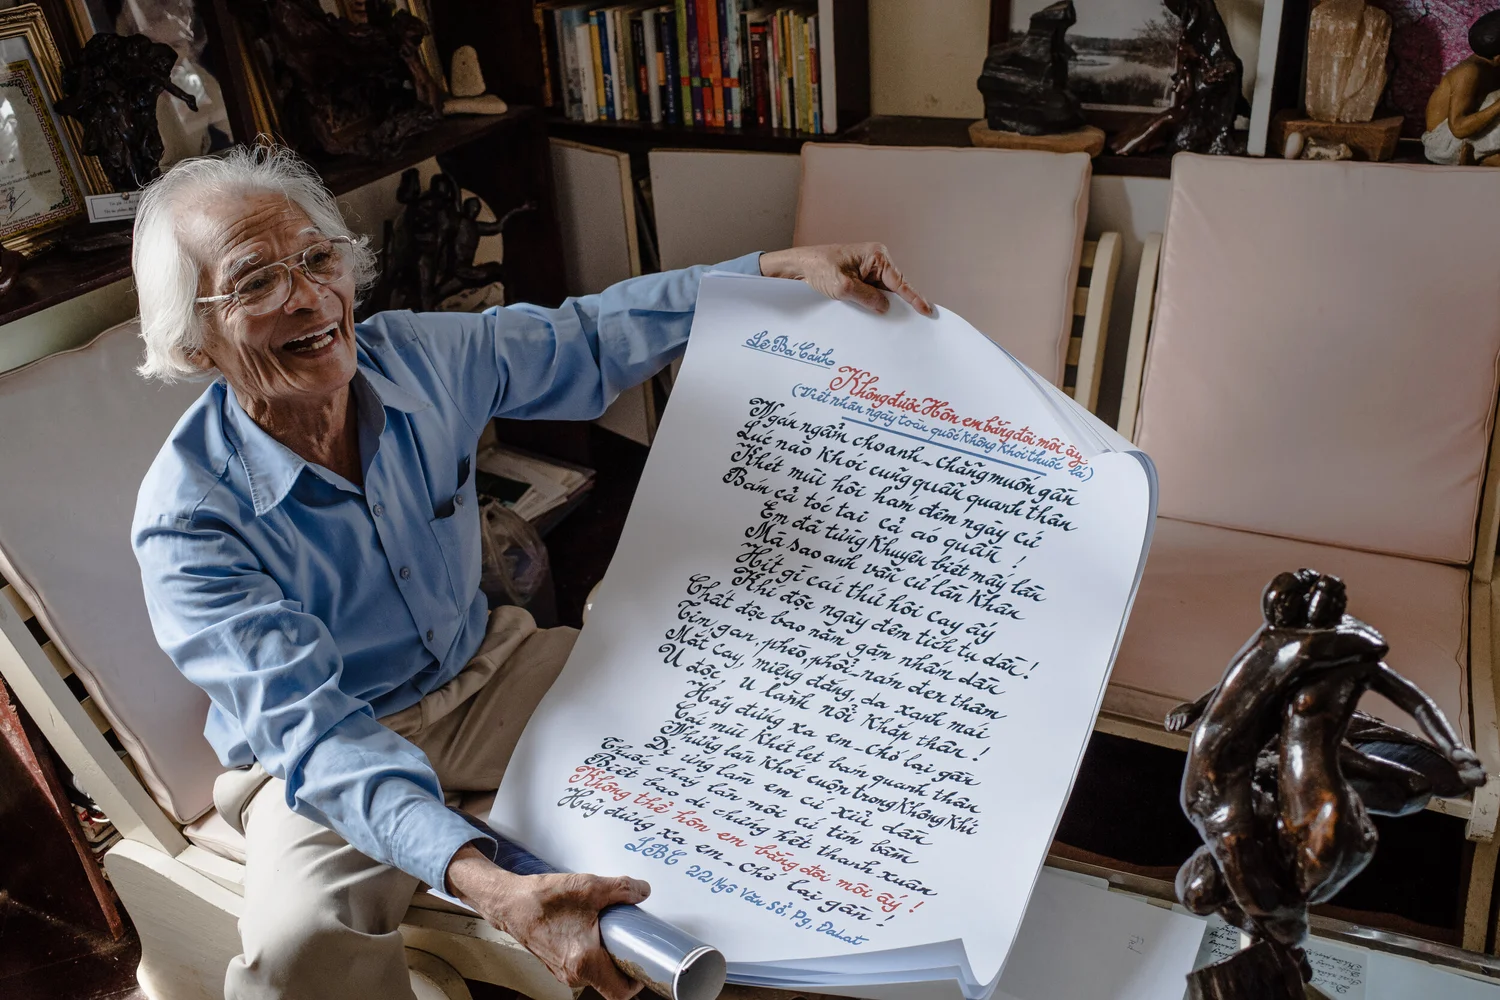 Lê Bá Cảnh
Không được Hôn em bằng đôi môi ấy
(Viết nhân ngày toàn quốc không khói thuốc lá)
Ngán ngẩm cho anh - Chẳng muốn gần
Lúc nào khói cũng quẩn quanh thân
Khét mùi hôi hám đêm ngày cứ
Bán cả tóc tai cả áo quần!
Em đã từng khuyên biết mấy lần
Mà sao anh vẫn cứ lần khân
Hít gì cái thứ hôi cay ấy
Khí độc ngày đêm tích tụ dần!
Chất độc bao năm gặm nhấm dần
Tim, gan, phèo, phổi, nám đen thâm
Mắt cay, miệng đắng, da xanh mai
U độc, U lành nổi khắp thân!
Hãy đứng xa em - Chớ lại gần
Cái mùi khét lẹt bán quanh thân
Những làn khói cuộn trong không khí
Dị ứng làm em cứ xỉu dần
Thuốc cháy lần môi cứ tím bầm
Biết bao di chứng hết thanh xuân
Không thể hôn em bằng đôi môi ấy!
Hãy đứng xa em - Chớ lại gần!
LBC 22 Ngô Văn Sở, Pg, Dalat